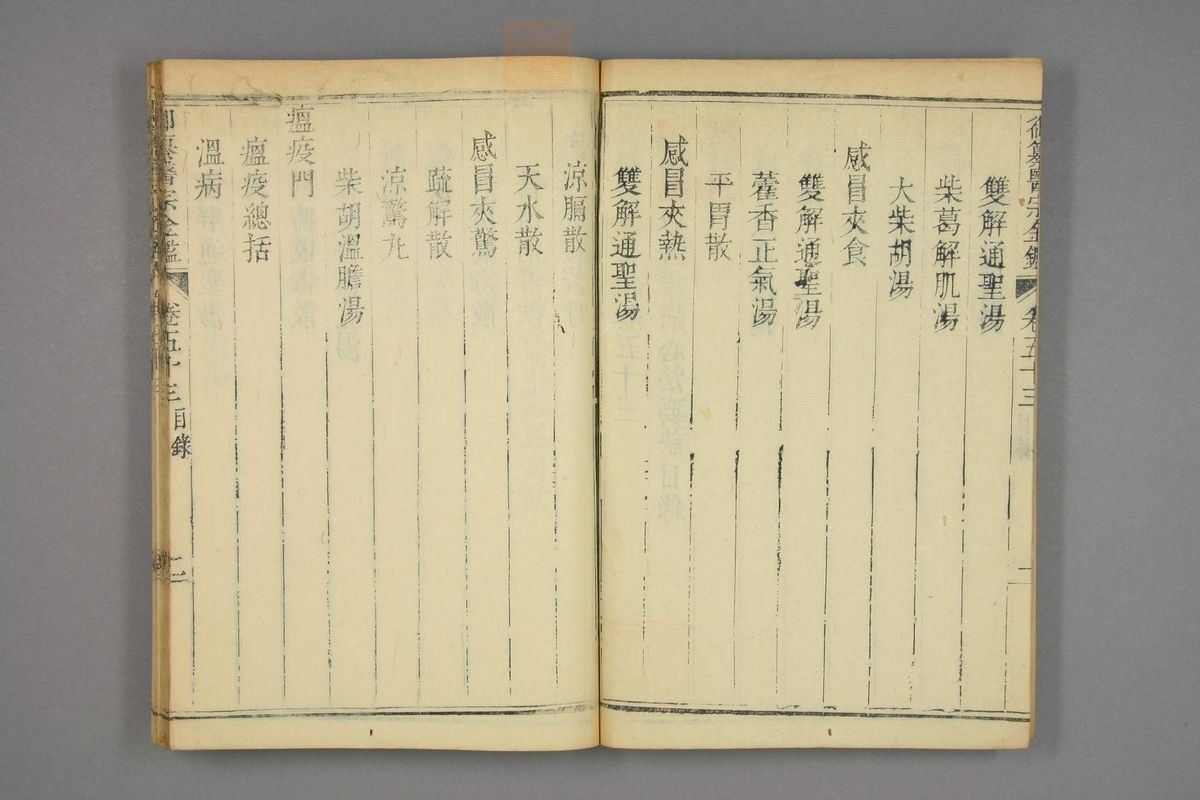 御纂醫宗金鑑 卷五十三 目錄 一
雙解通聖湯
柴葛解肌湯
大柴胡湯
感冒夾食
雙解通聖湯
藿香正氣湯
平胃散
感冒夾熱
雙解通聖湯
涼膈散
天水散
感冒夾驚
疏解散
涼驚丸
柴胡溫膽湯
瘟疫門
瘟疫總括
溫病
御纂醫宗金鑑 卷五十三 目錄 二